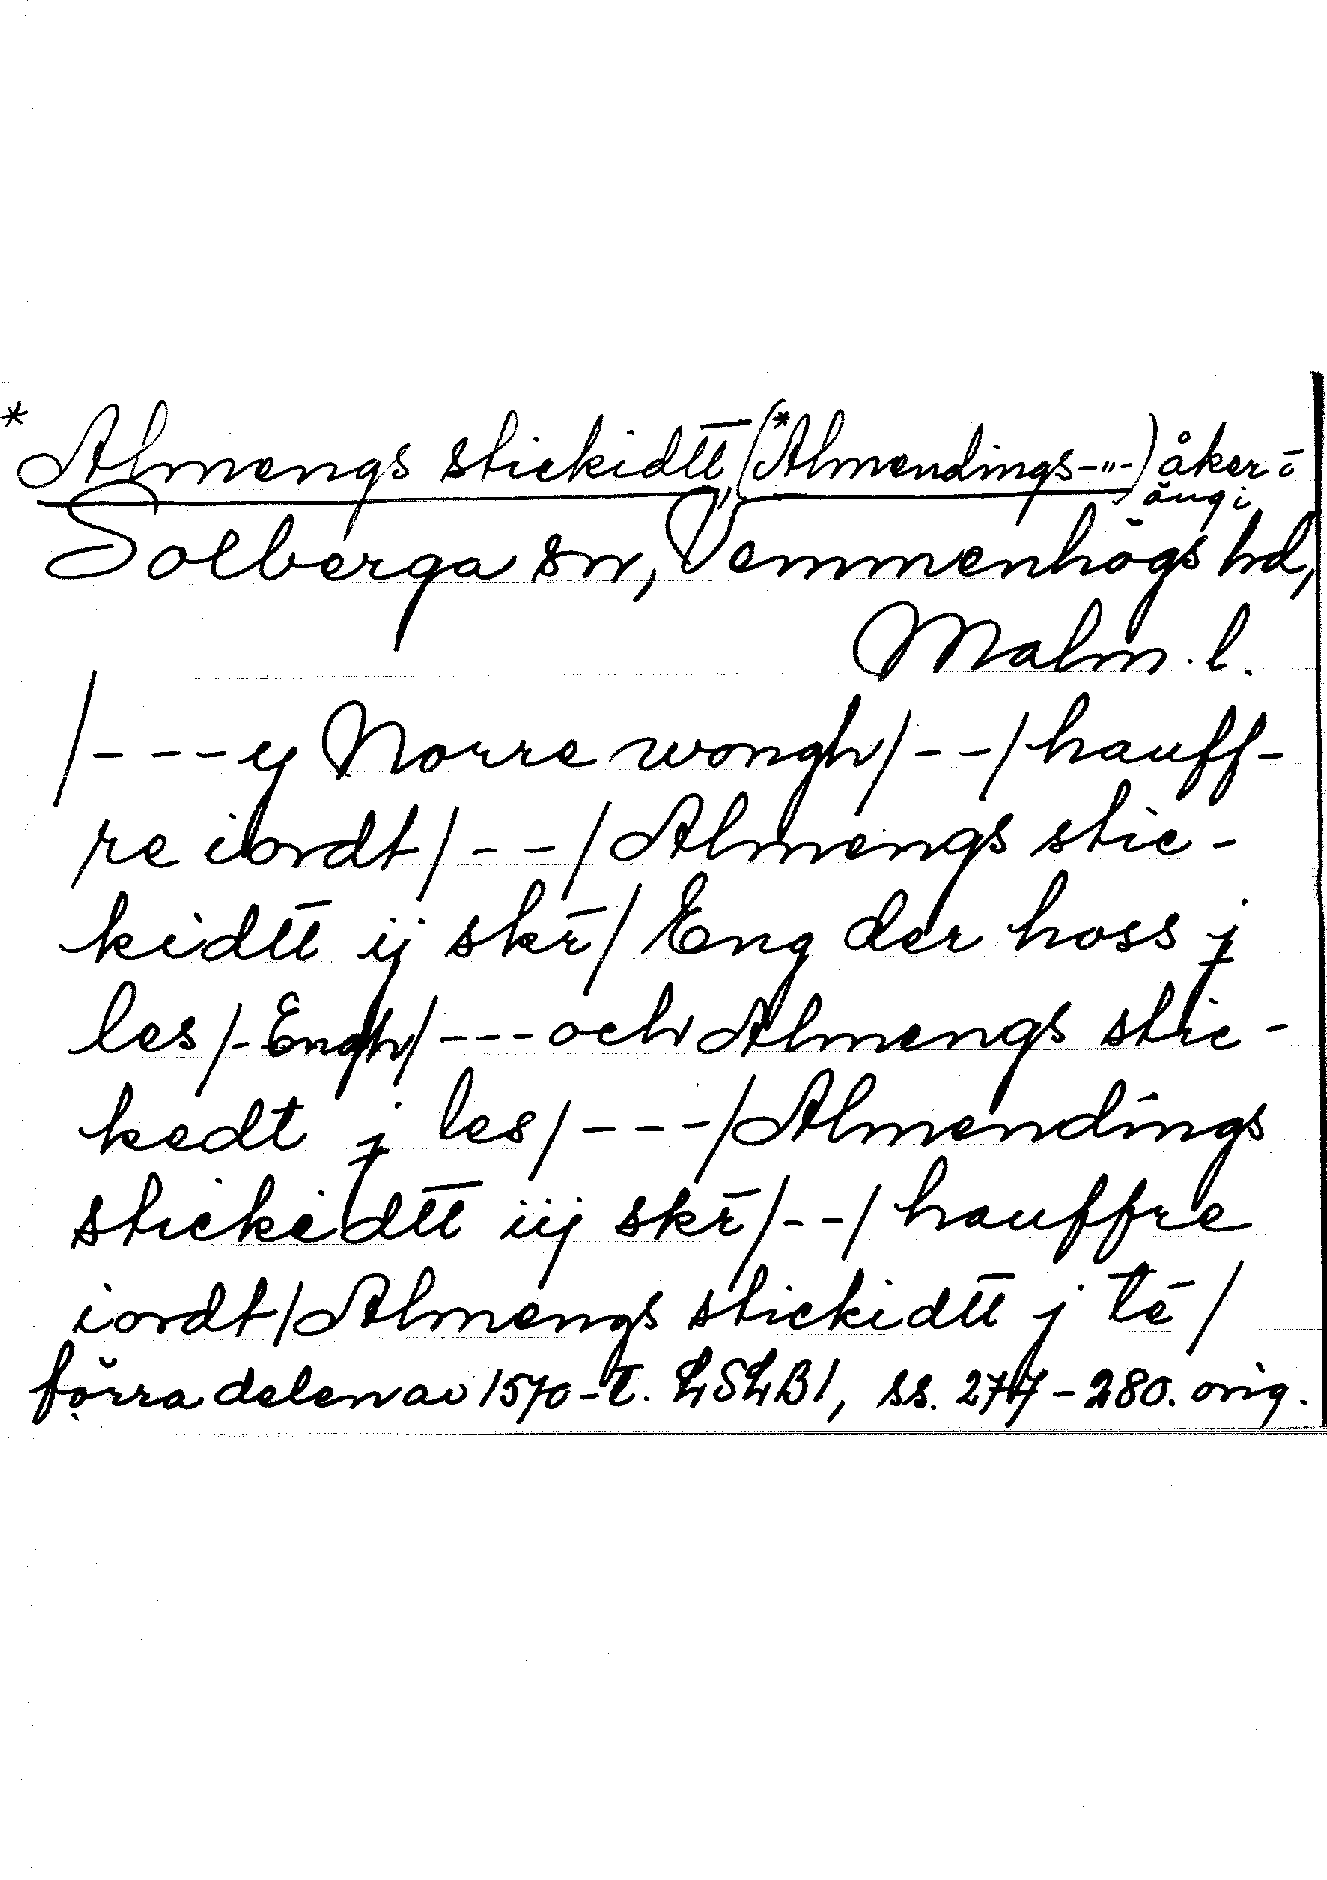 * Almengs stickidtt̄, (*Almendings-"-) åker ō
äng i
Solberga sn, Vemmenhögs hd,
Malm. l.
/---y Norre wongh/--/hauff-
re iordt/--/Almengs stic-
kidtt̄ ij skr̄/Eng der hoss j
les/-Engh/---och Almengs stic-
kedt j les/---/Almendings
stickidtt̄ iij skr̄/--/hauffre
iordt/Almengs stickidtt̄ j tē/
förra delen av 1570-t. LSLB1, ss. 277-280. orig.